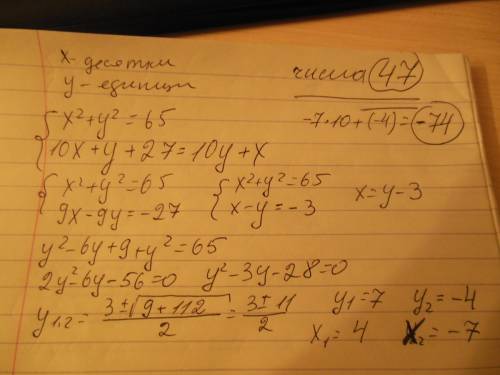 x - десятки
y - единицы
числа 47
-7·10+(-4)=-74
{ x²+y²=65
10x+y+27=10y+x
{ x²+y²=65
9x-9y=-27
{ x²+y²=65
x-y=-3
x=y-3
y²-6y+9+y²=65
2y²-6y-56=0 y²-3y-28=0
y₁,₂= (3±√(9+112))/2 = (3±11)/2
y₁=7 y₂=-4
x₁=4 x₂=-7